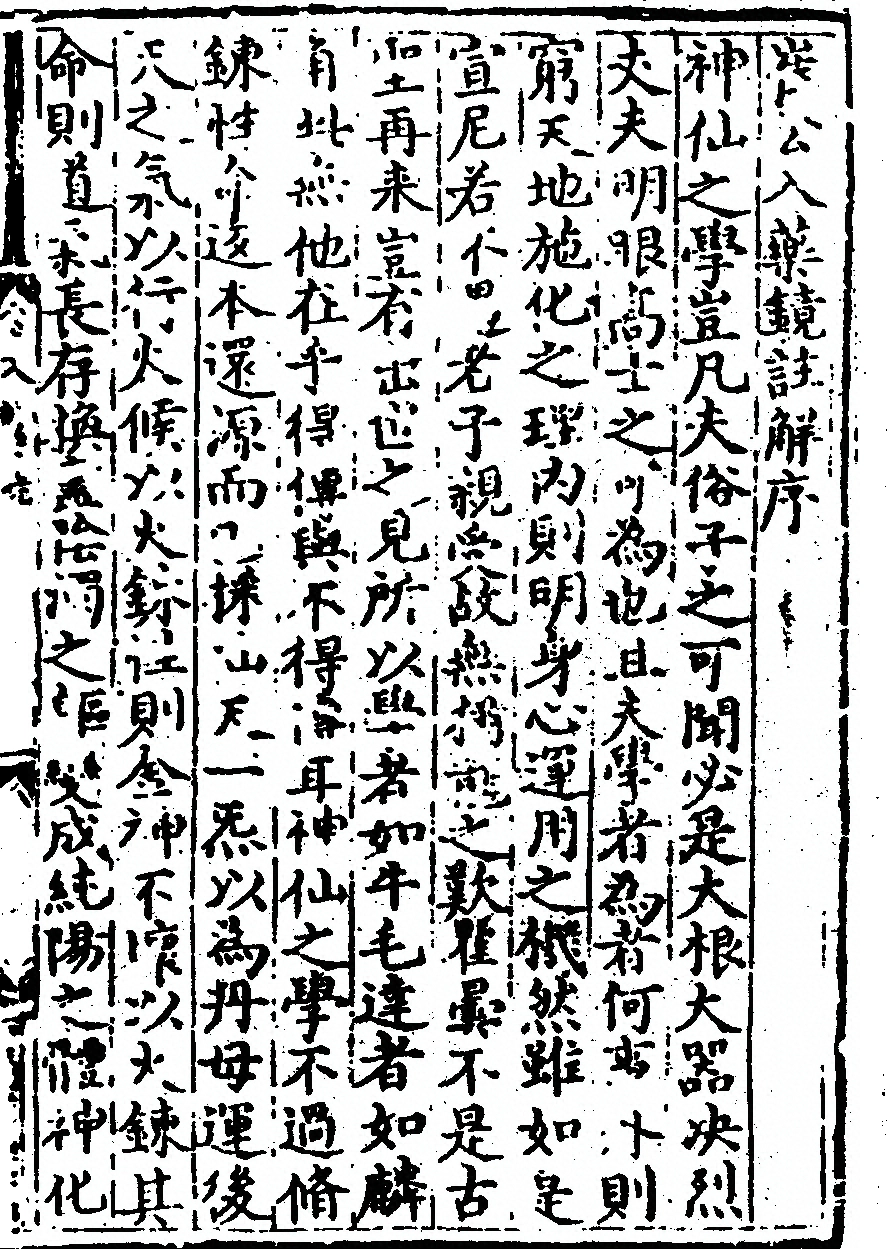 崔公入藥鏡註解序
神仙之學豈凡夫俗子之可聞必是大根大器决烈
丈夫明眼高士之可為也且夫學者為者何事外則
窮天地施化之理内則明身心運用之機然雖如是
宣尼若不田老子親受故無猶龍之歎瞿曇不是古
聖再来豈有出世之見所以學者如牛毛達者如麟
角此無他在乎得傳與不得傳耳神仙之學不過脩
鍊性命返本還源而已採先天一炁以為丹母運後
天之氣以行火候以火鍊性則金神不壞以火鍊其
命則道氣長存換盡陰濁之軀變成純陽之體神化